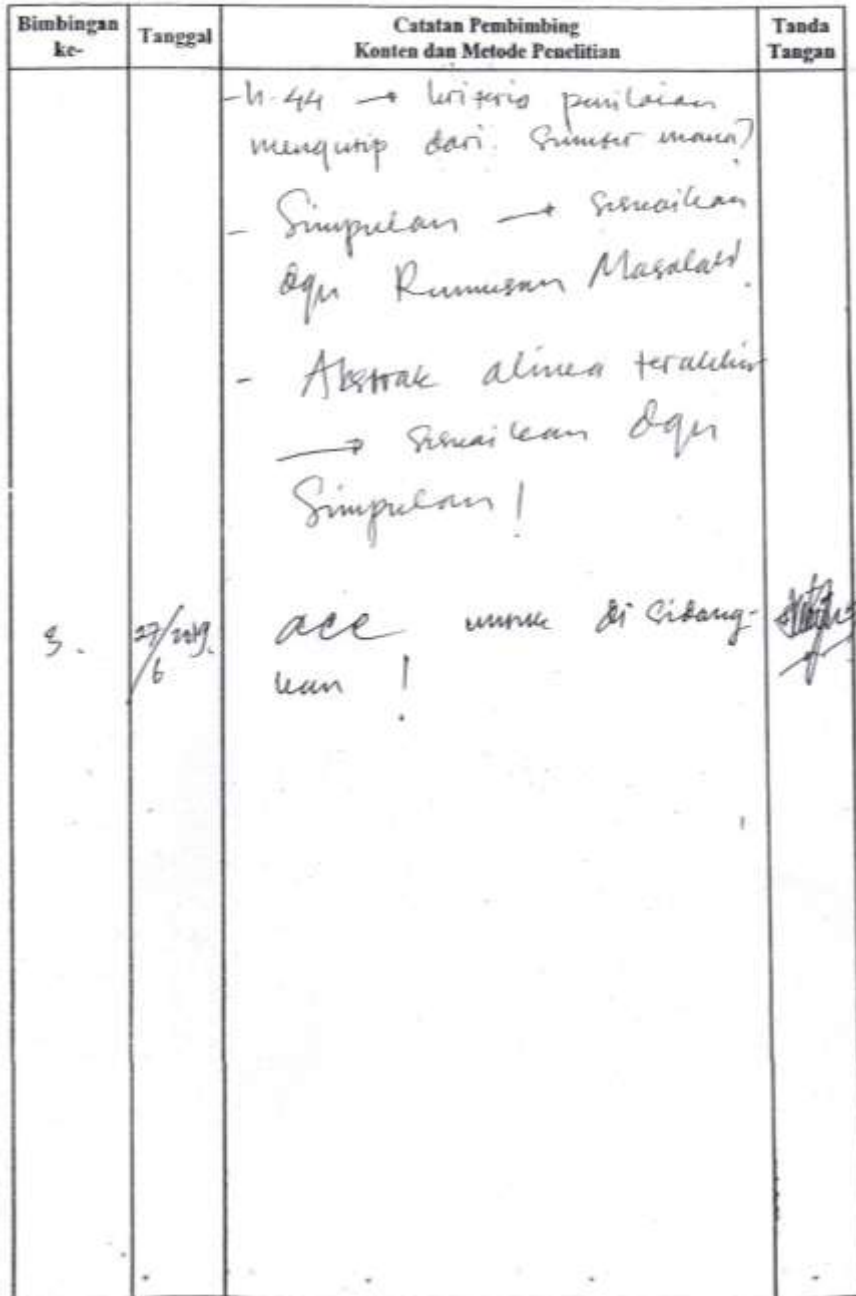 Bimbingan ke-
Tanggal
Catatan Pembimbing
Konten dan Metode Penelitian
Tanda Tangan
- h. 44 → kriteria penilaian
mengutip dari sumber mana?
- Simpulan → sesuaikan
dgn Rumusan Masalah.
- Abstrak alinea terakhir
→ sesuaikan dgn
Simpulan!
3. 27/6 2019. acc untuk di sidang-
kan!